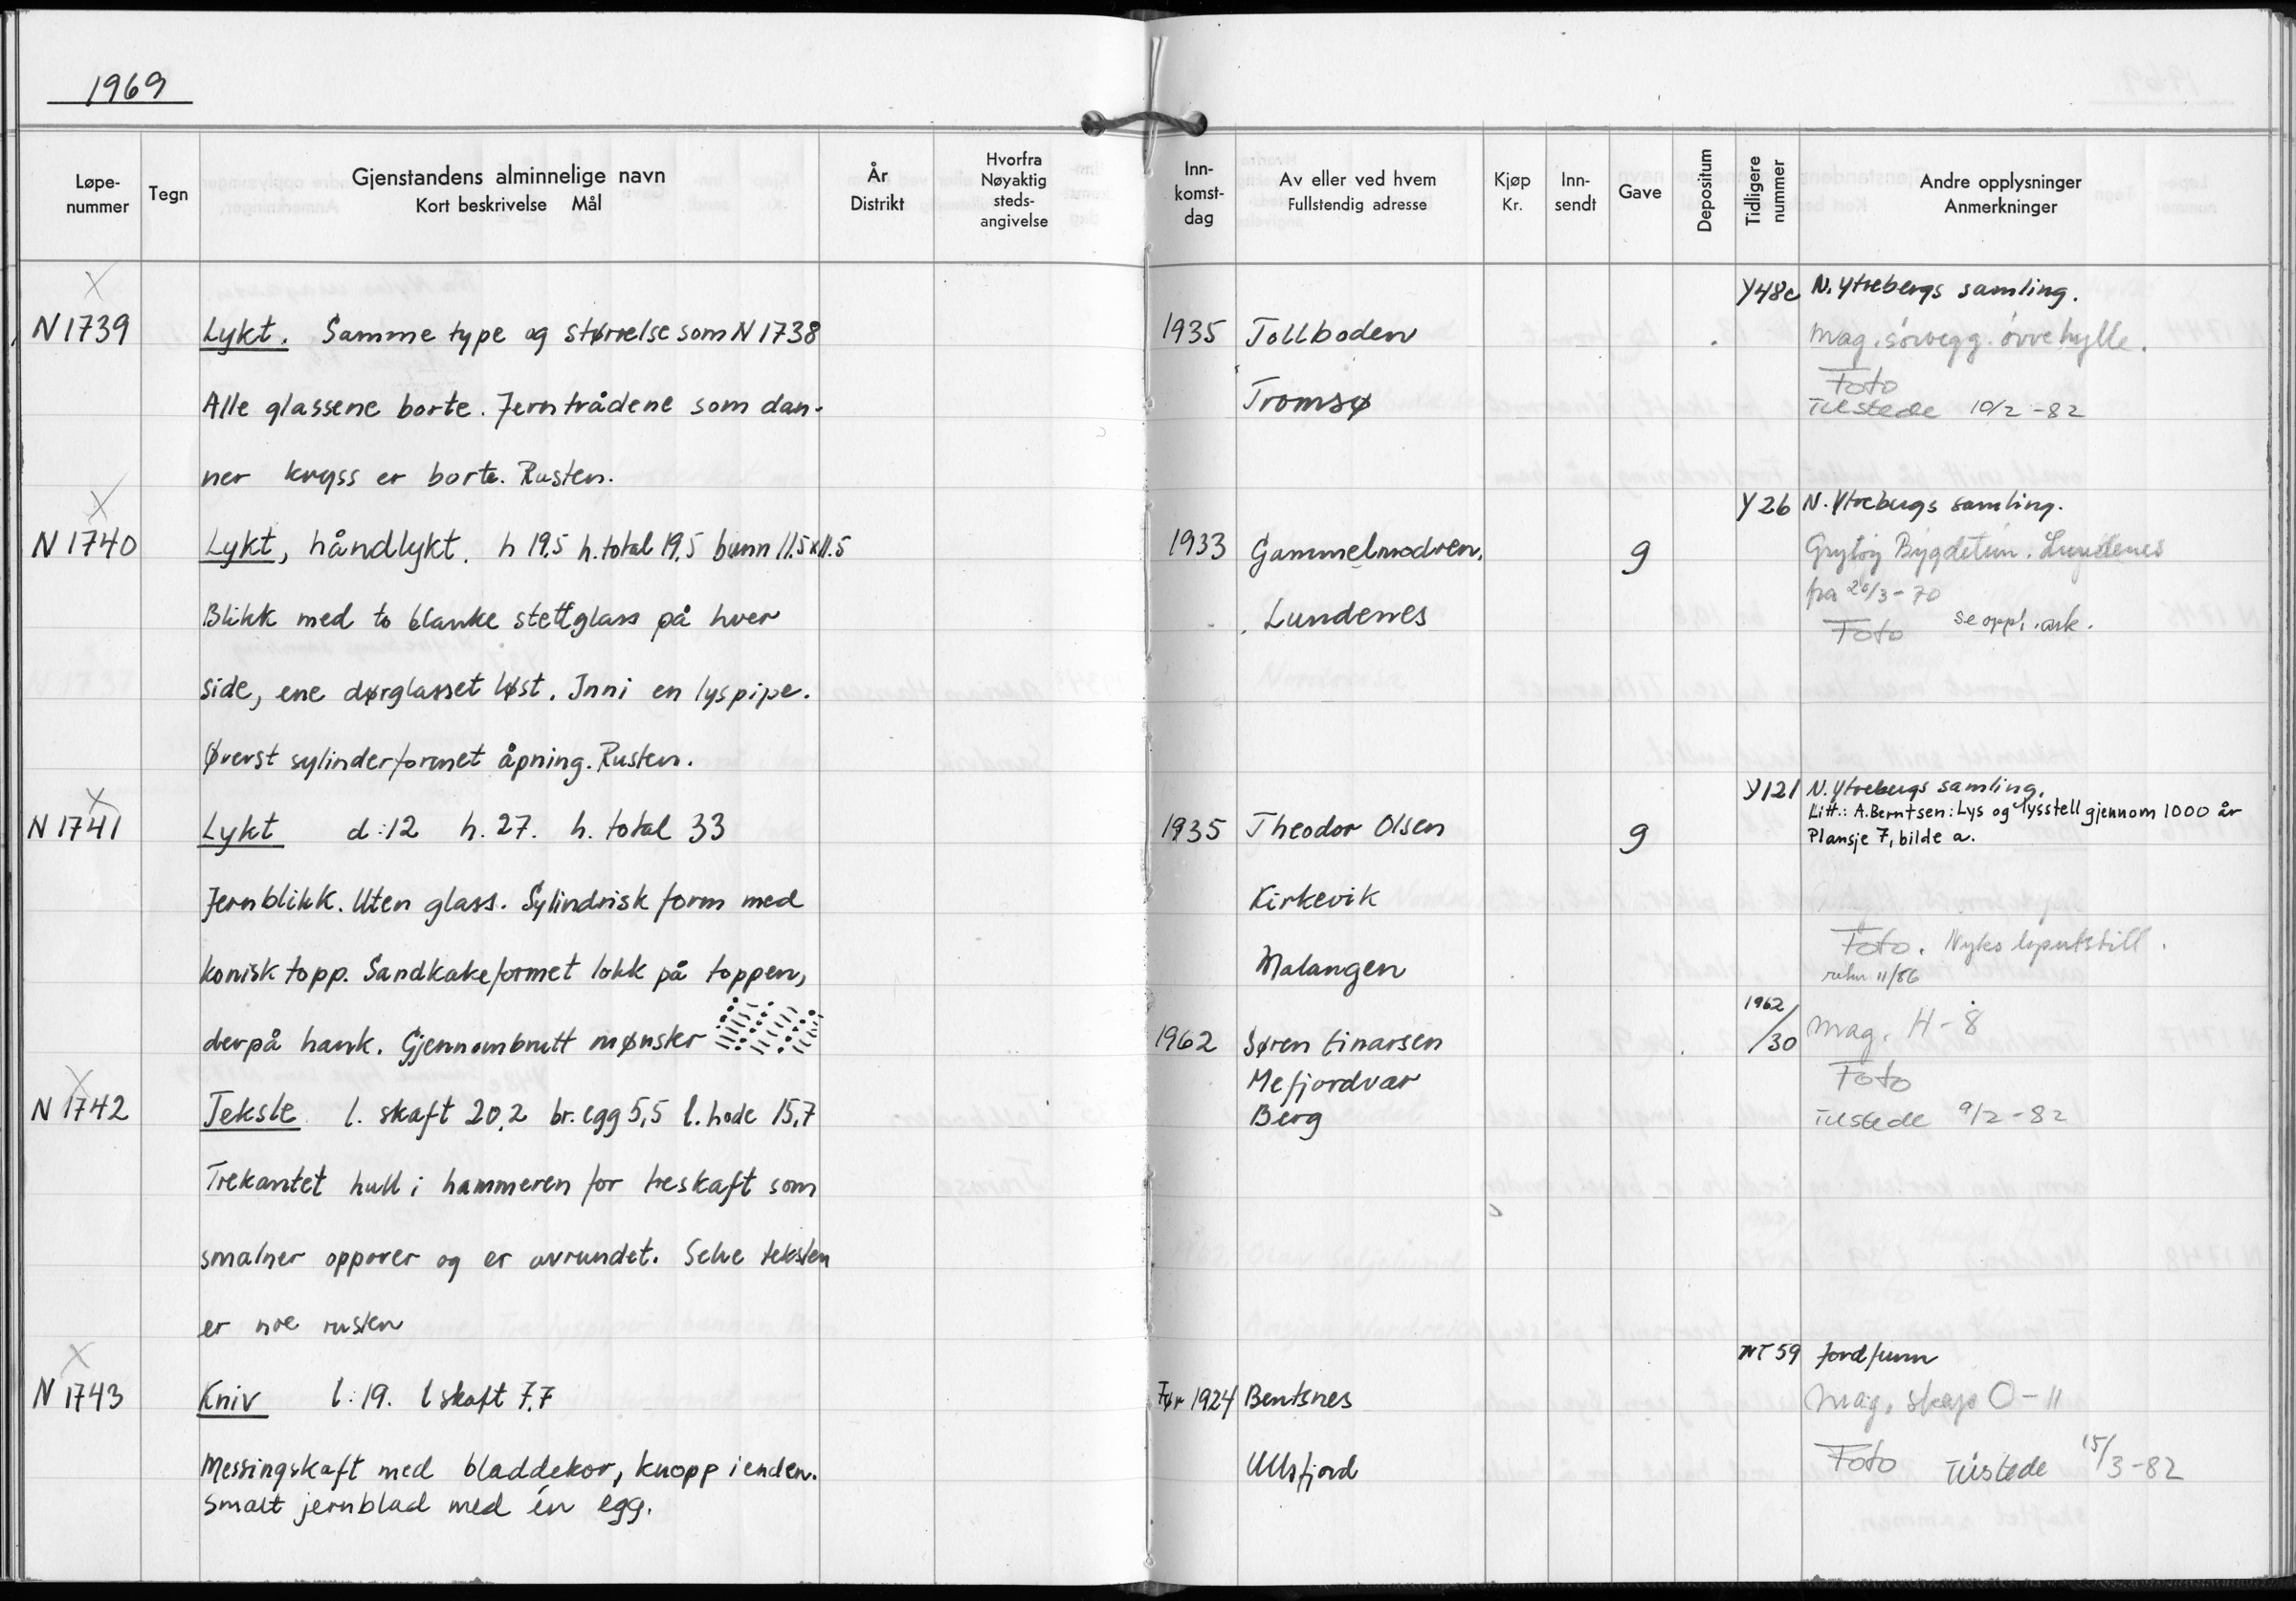 1969
Løpe-nummer Tegn Gjenstandens alminnelige navn Kort beskrivelse Mål År Distrikt Hvorfra Nøyaktig steds-angivelse Inn-komst-dag Av eller ved hvem Fullstendig adresse Kjøp Kr. Inn-sendt Gave Depositum Tidligere nummer Andre opplysninger Anmerkninger
X
Y48c N. Ytrebergs samling.
N 1739 Lykt. Samme type og størrelse som N 1738 1935 Tollboden mag. sørvegg. øvre hylle.
Foto
Alle glassene borte. Jerntrådene som dan- Tromsø Tilstede 10/2-82
ner kryss er borte. Rusten.
X
Y 26 N. Ytrebergs samling.
N 1740 Lykt, håndlykt. h 19,5 h. total 19,5 bunn 11.5x11.5 1933 g Grytøy Bygdetun. Lundenes
fra 20/3-70
Blikk med to blanke stettglass på hver Lundenes Foto se oppl. ark.
side, ene dørglasset løst. Inni en lyspipe.
Øverst sylinderformet åpning. Rusten.
X
Y121 N. Ytrebergs samling.
Litt.: A. Berntsen: Lys og lysstell gjennom 1000 år
N 1741 Lykt d:12 h. 27. h. total 33 1935 Theodor Olsen g Plansje 7, bilde a.
Jernblikk. Uten glass. Sylindrisk form med Kirkevik
Foto.
konisk topp. Sandkakeformet lokk på toppen, Malangen retur 11/86
1962/30 mag. H-8
derpå hank. Gjennombrutt mønster 1962 Søren Einarsen
X
Mefjordvær Foto
N 1742 Teksle l. skaft 20,2 br. egg 5,5 l. hode 15,7 Berg Tilstede 9/2-82
Trekantet hull i hammeren for treskaft som
smalner oppover og er avrundet. Selve tekslen
er noe rusten
X
NT 59 Jordfunn
N 1743 Kniv l:19. l skaft 7,7 Før 1924 Bentsnes Mag. skap O-11
Messingskaft med bladdekor, knopp i enden. Ullsfjord Foto Tilstede 15/3-82
Smalt jernblad med én egg.